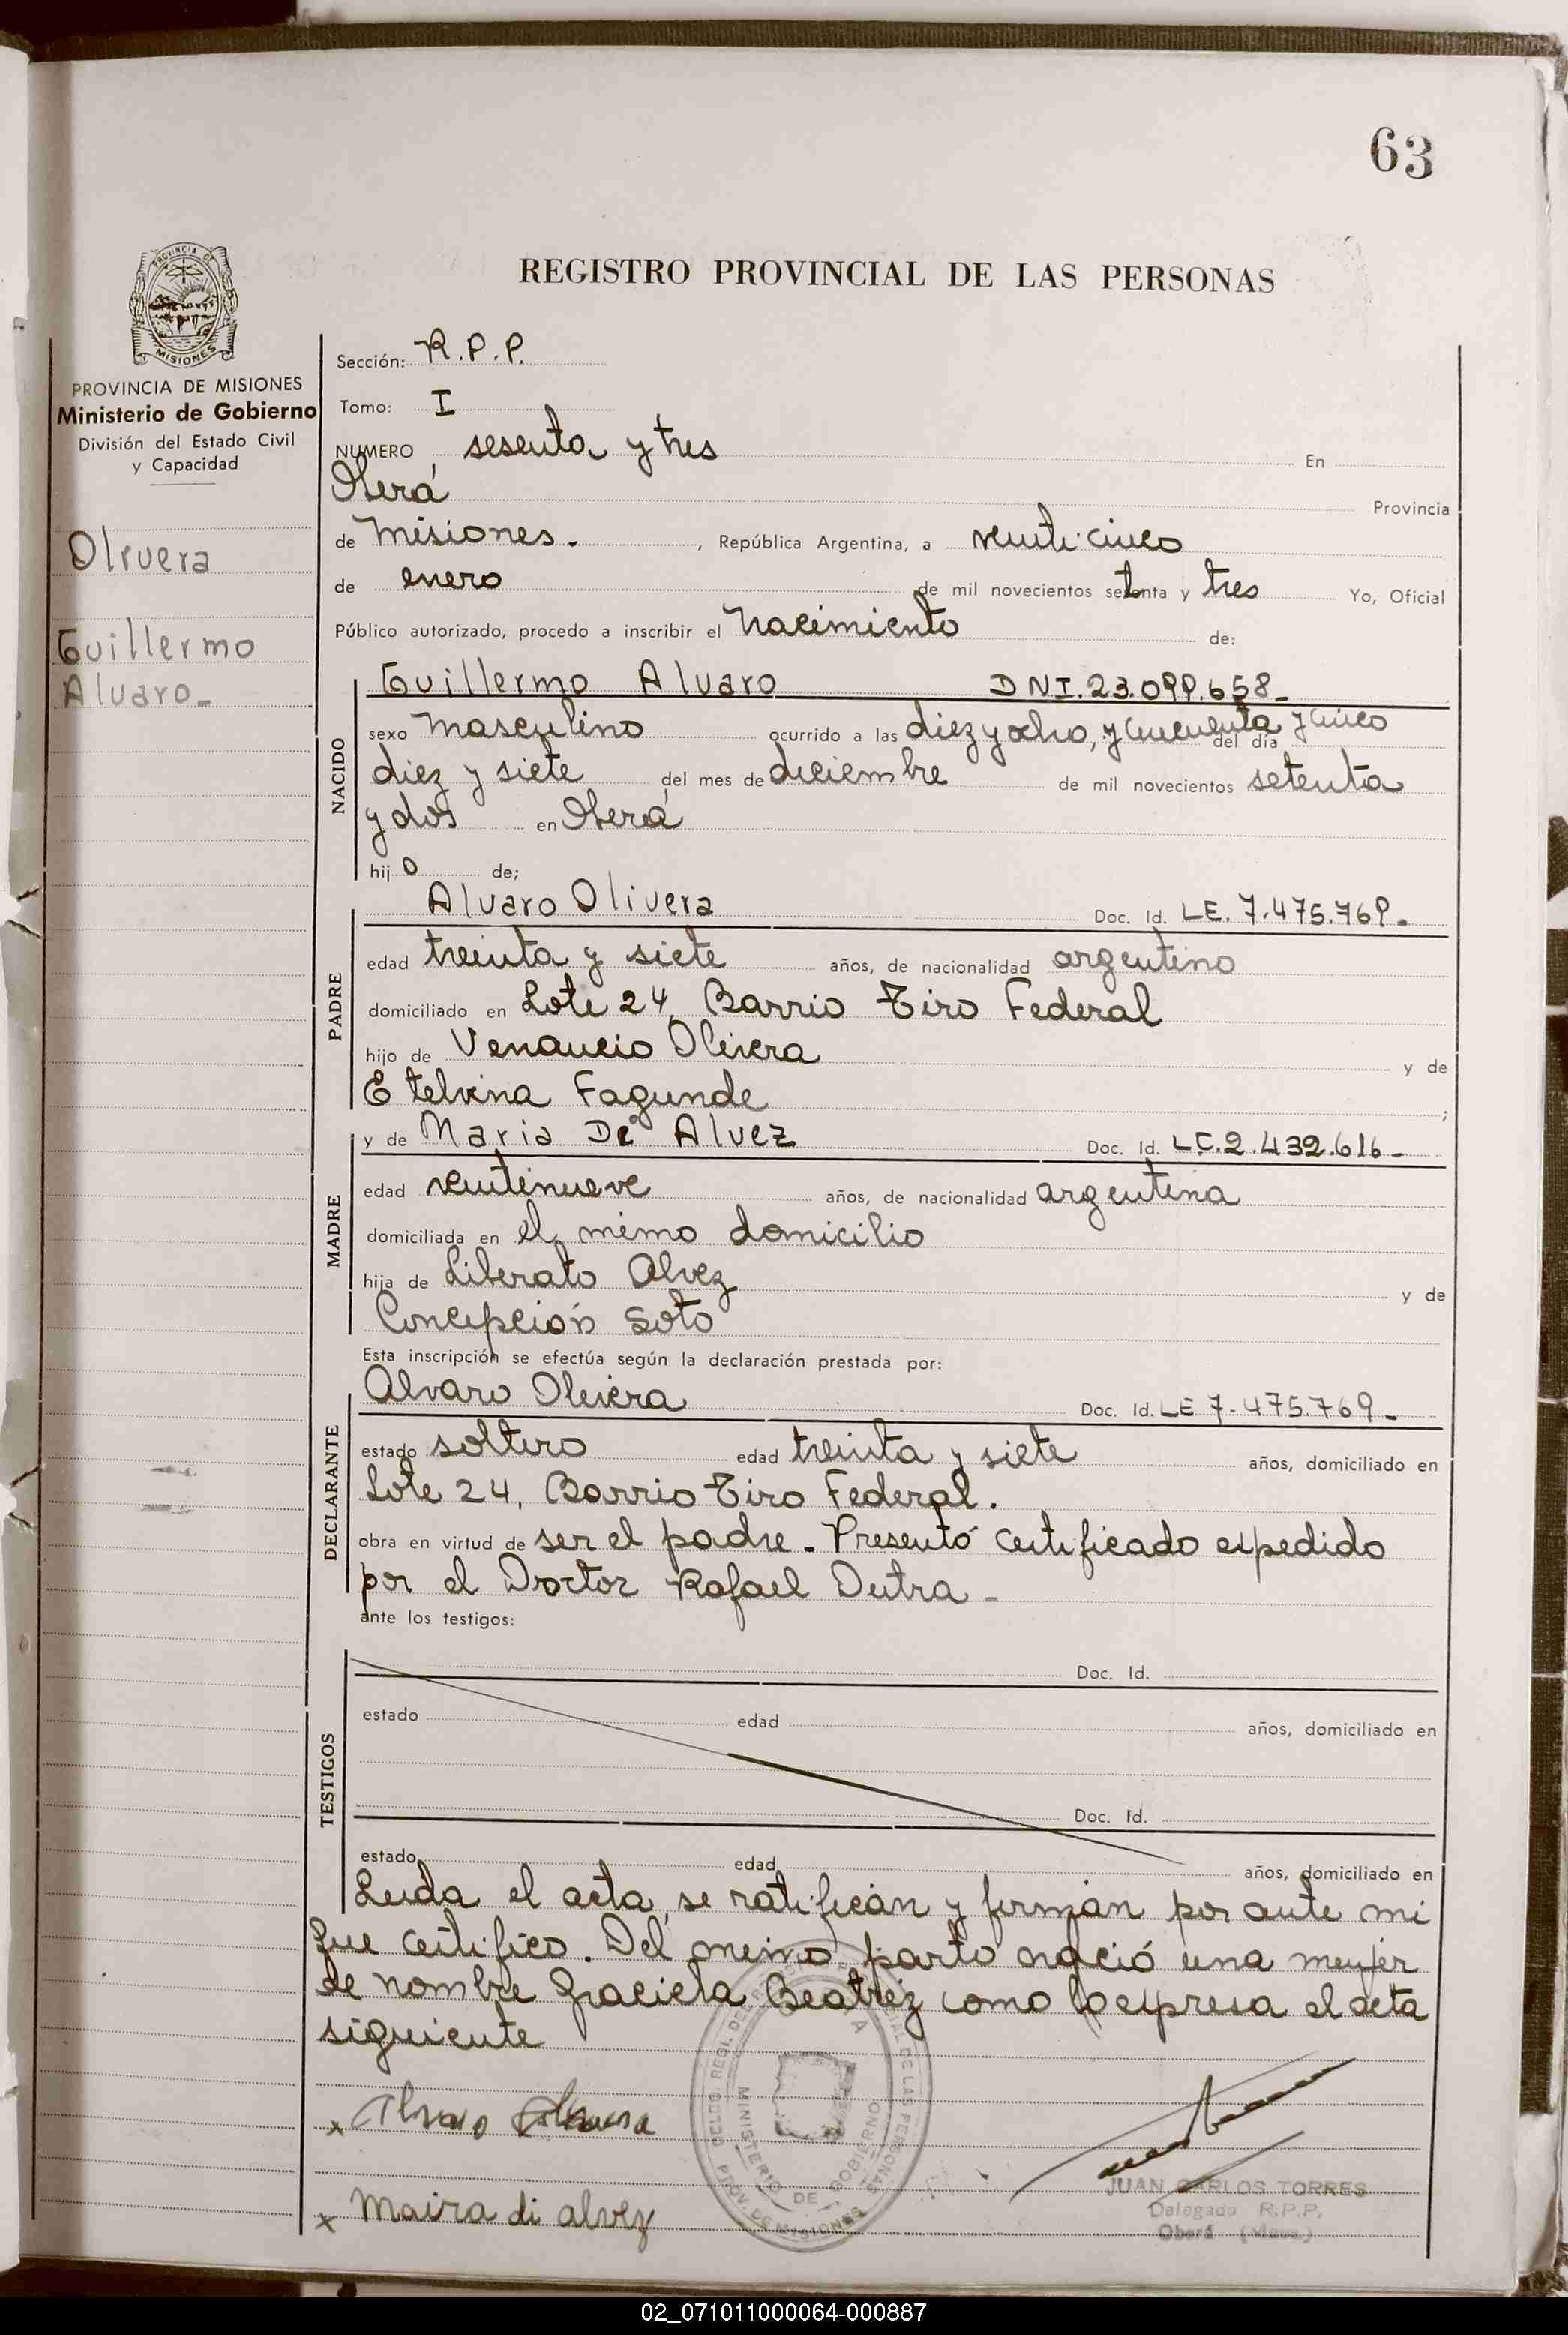 63
PROVINCIA DE
MISIONES
REGISTRO PROVINCIAL DE LAS PERSONAS
PROVINCIA DE MISIONES
Ministerio de Gobierno
División del Estado Civil
y Capacidad
Olivera
Guillermo
Alvaro.-
Sección: R.P.P.
Tomo: I
NUMERO sesenta y tres En
Oberá Provincia
de Misiones. , República Argentina, a veinticinco
de enero de mil novecientos setenta y tres Yo, Oficial
Público autorizado, procedo a inscribir el Nacimiento de:
NACIDO
Guillermo Alvaro DNI. 23.099.658-
sexo masculino ocurrido a las diez y ocho, y cincuenta y cinco del día
diez y siete del mes de diciembre de mil novecientos setenta
y dos en Oberá
hijo de;
PADRE
Alvaro Olivera Doc. Id. LE. 7.475.769.
edad treinta y siete años, de nacionalidad argentino
domiciliado en Lote 24, Barrio Tiro Federal
hijo de Venancio Olivera y de
Etelvina Fagunde ;
MADRE
y de Maria De Alvez Doc. Id. LC. 2.432.616-
edad veintinueve años, de nacionalidad argentina
domiciliada en el mimo domicilio
hija de Liberato Alvez y de
Concepción Soto
Esta inscripción se efectúa según la declaración prestada por:
DECLARANTE
Alvaro Olivera Doc. Id. LE 7-475.769-
estado soltero edad treinta y siete años, domiciliado en
Lote 24, Barrio Tiro Federal.
obra en virtud de ser el padre - Presentó certificado expedido
por el Doctor Rafael Dutra -
ante los testigos:
TESTIGOS
Doc. Id.
estado edad años, domiciliado en
Doc. Id.
estado edad años, domiciliado en
Leida el acta, se ratifican y firman por ante mi
que certifico. Del mimo parto nació una mujer
de nombre Graciela Beatriz como lo expresa el acta
siguiente
x Alvaro Olivera
x Maira di alvez
MINISTERIO DE GOBIERNO
PROV. DE MISIONES
JUAN CARLOS TORRES
Delegado R.P.P.
Oberá (Mnes.)
02_071011000064-000887